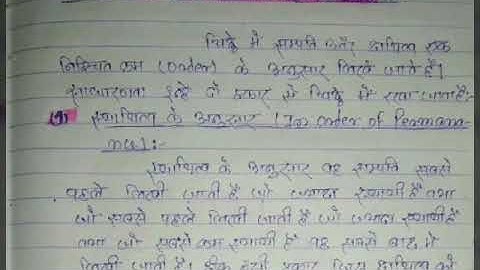 चिट्ठे में सम्पत्ति और दायित्व एक
निश्चित क्रम (Order) के अनुसार लिखे जाते हैं।
साधारणतः इन्हें दो प्रकार से चिट्ठे में रखा जाता है:-
(1) स्थायित्व के अनुसार (In order of Permana-
nce):-
स्थायित्व के अनुसार वह सम्पत्ति सबसे
पहले लिखी जाती है जो ज्यादा स्थायी है तथा
जो सबसे पहले लिखी जाती है जो ज्यादा स्थायी है
तथा जो सबसे कम स्थायी है वह सबसे बाद में
लिखी जाती है। ठीक इसी प्रकार जिस दायित्व को